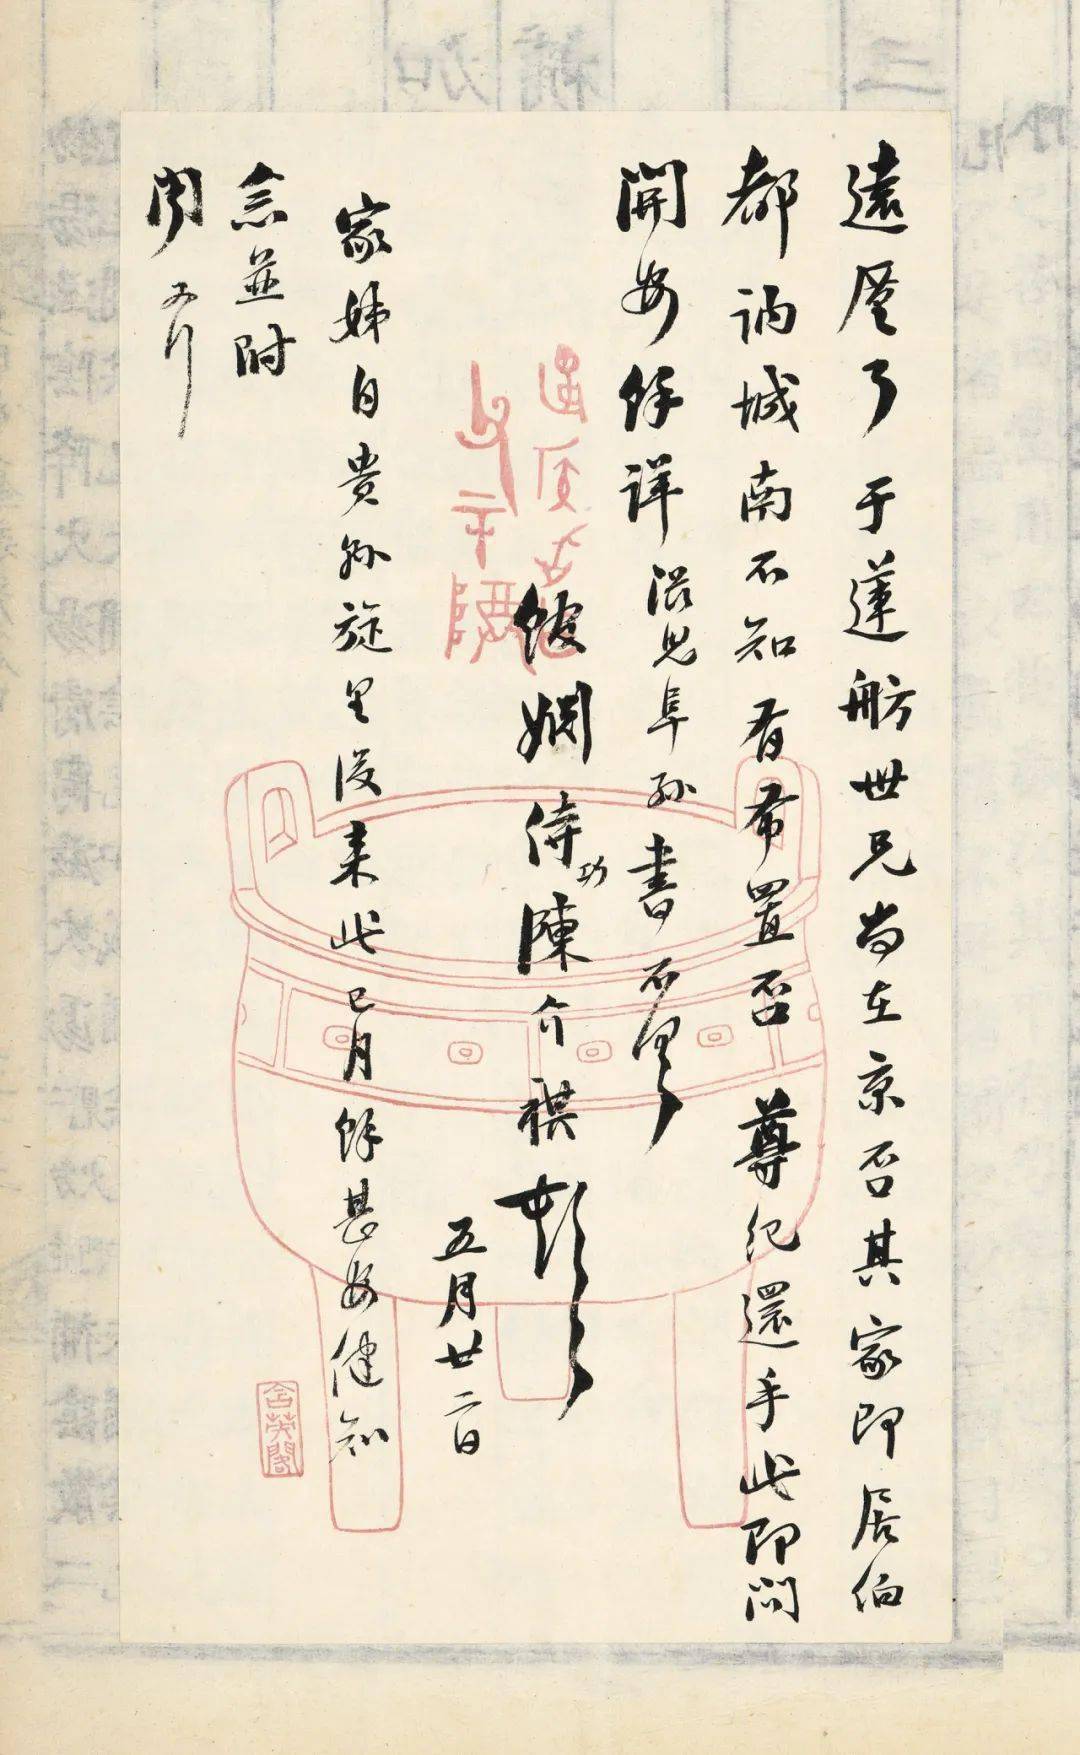 遠屋了于蓮舫世兄尚在京否其家即居伯
都訥城南不知有布置否尊紀還手此即問
開安餘詳滋兒阜孫書不具
後姻侍功陳介祺頓
五月廿二日
家姊自貴孫旋里後來此已月餘甚安健知
念並附
聞又行
含英閣